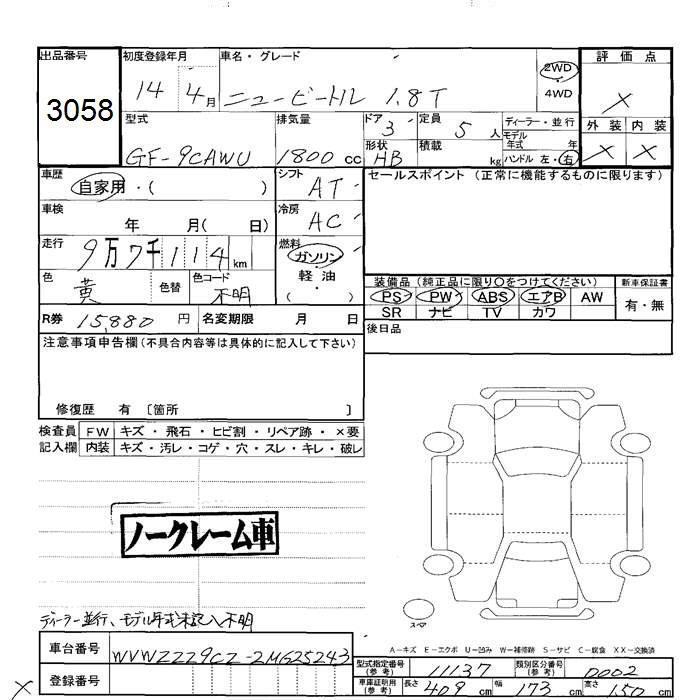 出品番号
3058
初度登録年月
14 4月
車名・グレード
ニュービートル 1.8T
2WD
4WD
評価点
×
外装 内装
× ×
型式
GF-9CAWU
排気量
1800 cc
ドア 3
形状 HB
定員 5 人
積載 kg
ディーラー・並行
モデル年式 年
ハンドル 左・右
車歴
自家用・( )
シフト
AT
車検
年 月( 日)
冷房
AC
走行
9万7千114 km
燃料
ガソリン
・
軽油
( )
色
黄
色替
色コード
不明
R券 15,880 円
名変期限 月 日
セールスポイント (正常に機能するものに限ります)
装備品(純正品に限り○をつけてください)
PS PW ABS エアB AW
SR ナビ TV カワ
新車保証書
有・無
後日品
注意事項申告欄(不具合内容等は具体的に記入して下さい)
修復歴 有 〔箇所 〕
検査員記入欄
FW キズ・飛石・ヒビ割・リペア跡・×要
内装 キズ・汚レ・コゲ・穴・スレ・キレ・破レ
ノークレーム車
ディーラー並行、モデル年式未記入不明
スペア
A-キズ E-エクボ U-凹み W-補修跡 S-サビ C-腐食 XX-交換済
車台番号
WVWZZZ9CZ-2M625243
登録番号
×
型式指定番号(参考) 11137
類別区分番号(参考) 0002
車庫証明用(参考) 長さ 409 cm 幅 173 cm 高さ 150 cm